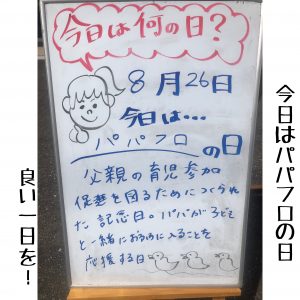 今日は何の日?
8月26日
今日は…
パパフロの日
父親の育児参加
促進を図るためにつくられ
た記念日。パパが子ども
と一緒におふろに入ることを
応援する日
今日はパパフロの日
良い一日を!